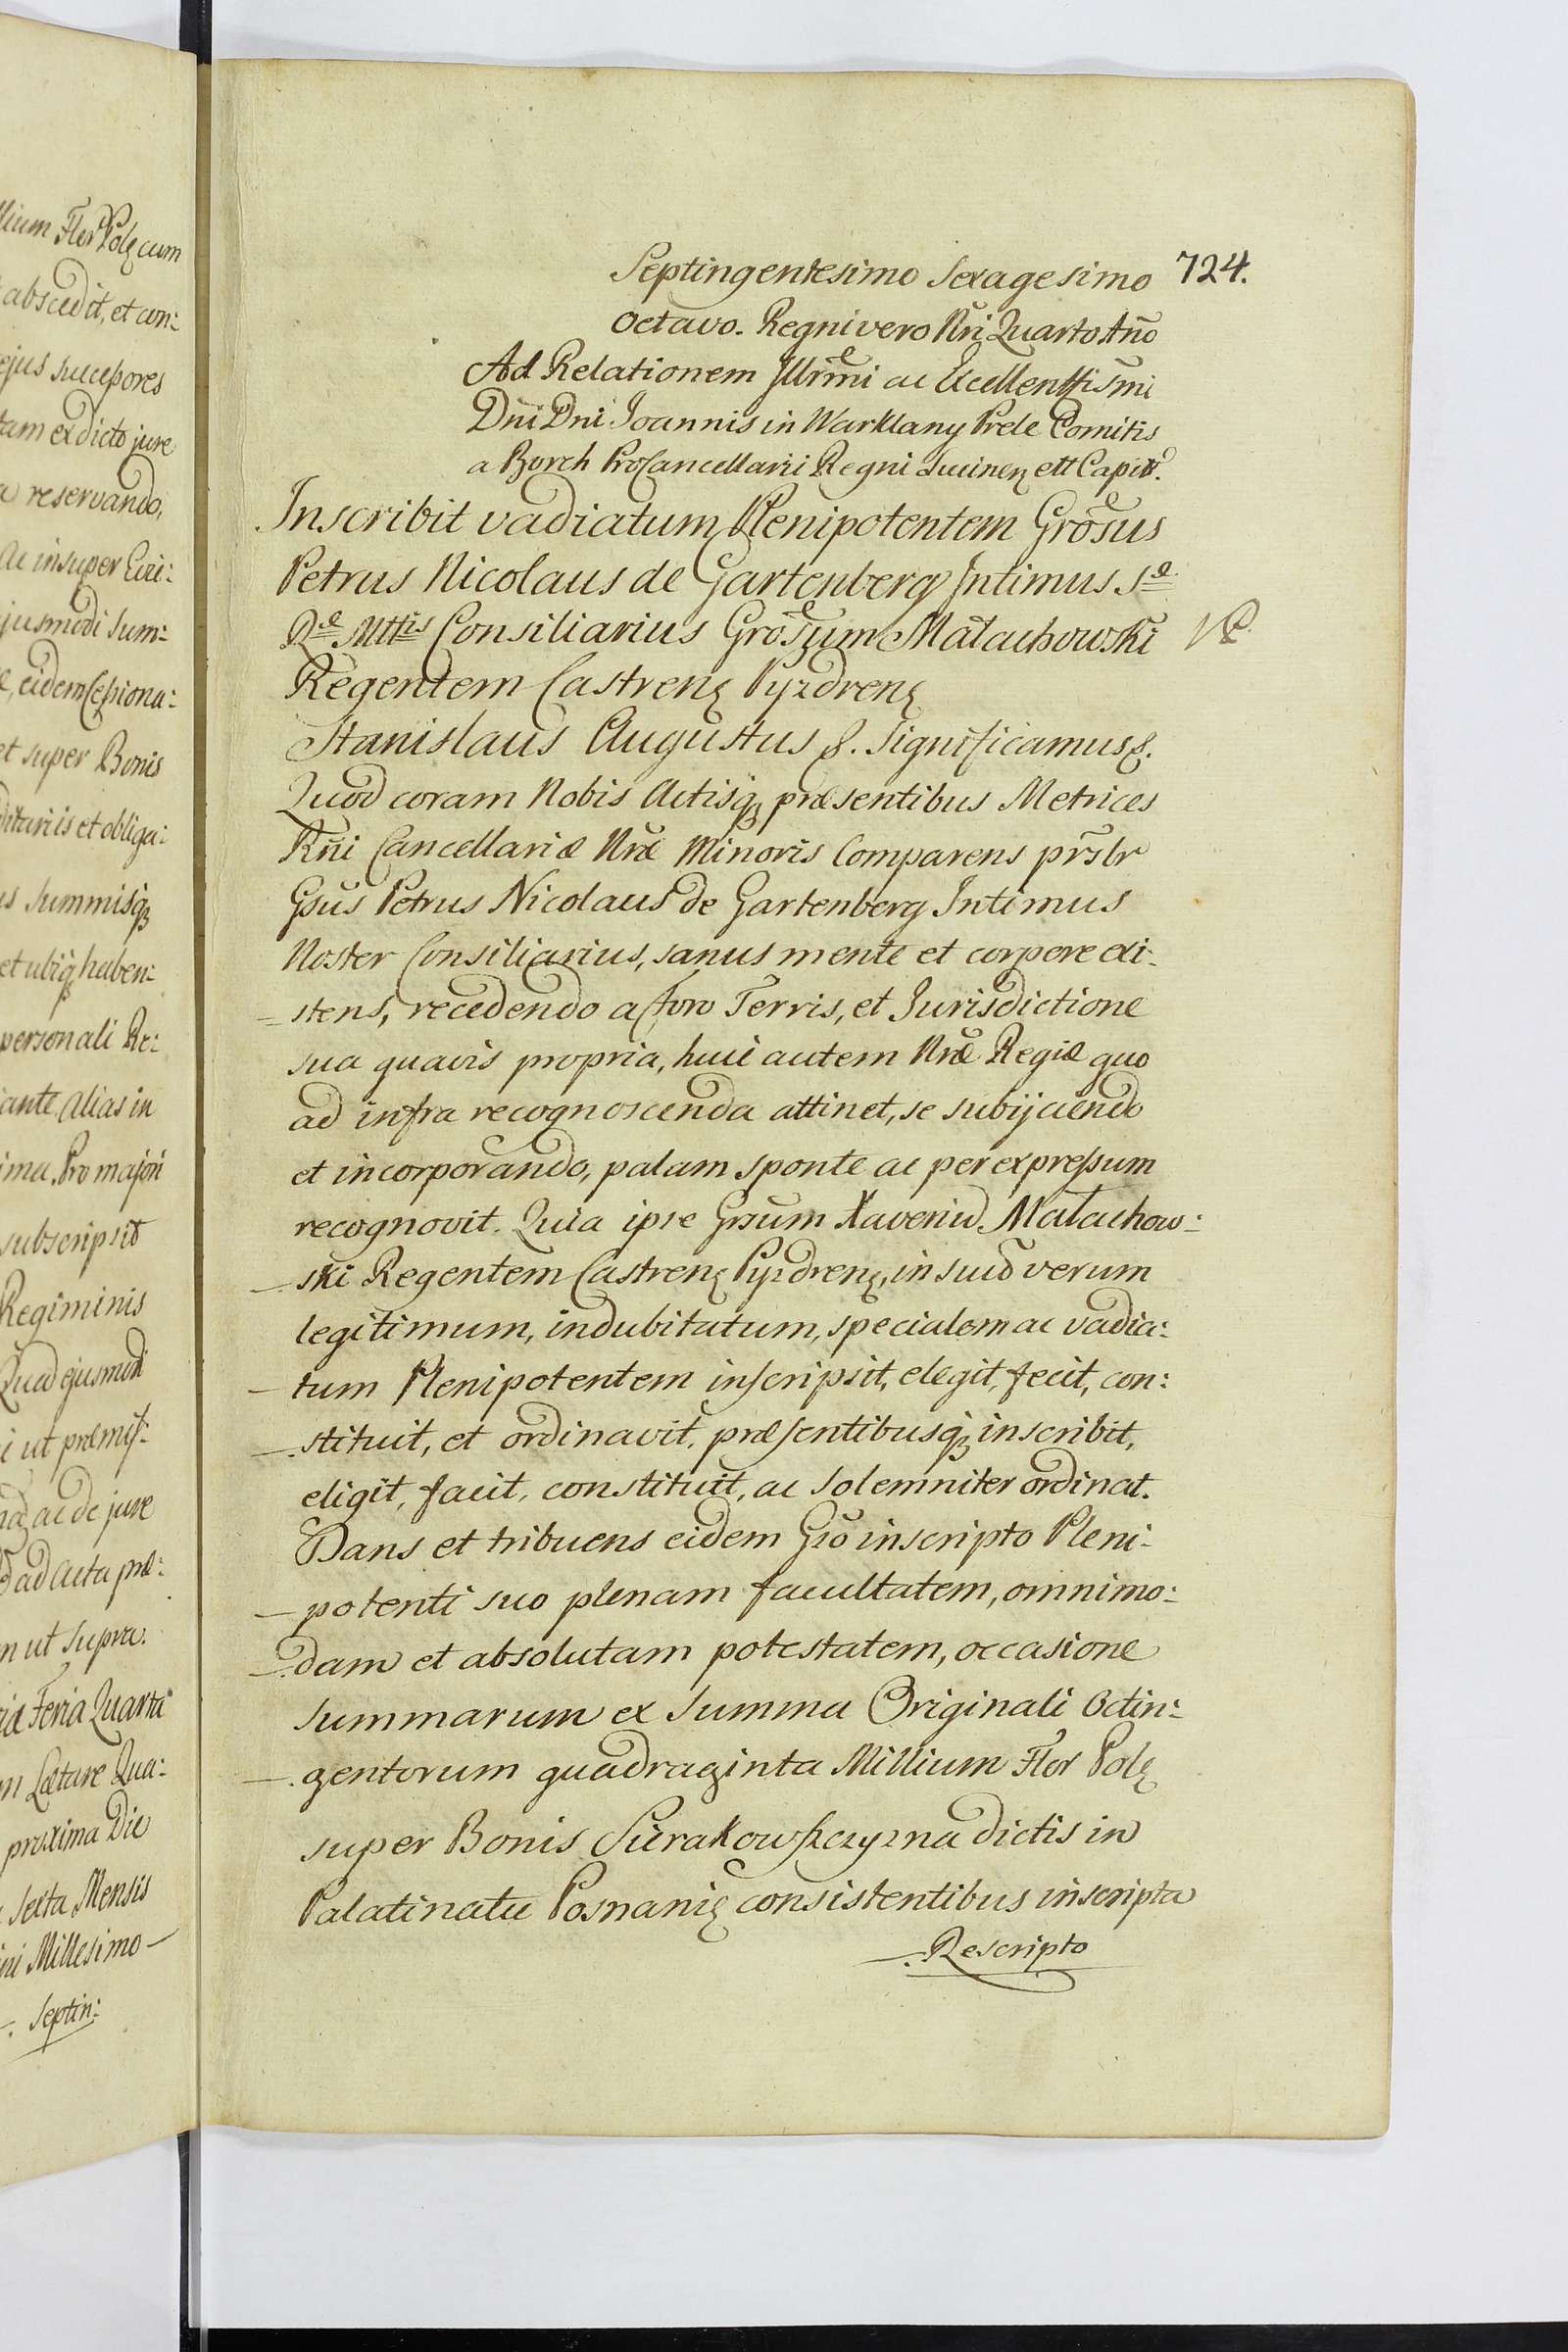 llium Flor Pole cum
abscedit, et con:
ejus successores
tam ex dicto jure
reservando,
Ac insuper Evi:
jusmodi Sum:
eidem Cessiona:
et super Bonis
ditariis et obliga:
is Summisqz
et ubiqz haben:
personali Re:
iante, alias in
ima, Pro majori
subscripsit
Regiminis
Quad ejusmodi
i ut præmiss:
ac de jure
ad Acta præ:
n ut Supra.
Feria Quarta
m Lætare Qua:
proxima Die
Sexta Mensis
ini Millesimo
Septin:
724.
Septingentesimo Sexagesimo
Octavo. Regni vero Nri Quarto Año
Ad Relationem Illrmi ac Excellenttismi
Dñi Dñi Joannis in Warklany Prele Comitis
a Borch ProCancellarii Regni Lucinen ett Capit.
Inscribit vadiatum Plenipotentem Grosus
Petrus Nicolaus de Gartenberg Intimus Sæ
Ræ Mttis Consiliarius Groszum Małachowski
Regentem Castren Pyzdren
Stanislaus Augustus &. Significamus &.
Quod coram Nobis Actisqz præsentibus Metrices
Rñi Cancellariæ Nræ Minoris Comparens prslr
Gsus Petrus Nicolaus de Gartenberg Intimus
Noster Consiliarius, sanus mente et corpore exi-
-stens, recedendo a foro Terris, et Jurisdictione
sua quavis propria, huic autem Nræ Regiæ quo
ad infra recognoscenda attinet, se subijciendo
et incorporando, palam sponte ac per expressum
recognovit. Quia ipse Grsum Xaveriu Małachow-
-ski Regentem Castren Pyzdren, in suū verum
legitimum, indubitatum, specialem ac vadia:
-tum Plenipotentem inscripsit, elegit, fecit, con:
-stituit, et ordinavit, præsentibusqz inscribit,
eligit, facit, constituit, ac Solemniter ordinat.
Dans et tribuens eidem Gro inscripto Pleni-
-potenti suo plenam facultatem, omnimo:
-dam et absolutam potestatem, occasione
Summarum ex Summa Originali Octin:
-gentorum quadraginta Millium Flor Pole
super Bonis Sierakowszczyzna dictis in
Palatinatu Posnanie consistentibus inscripta
Rescripto